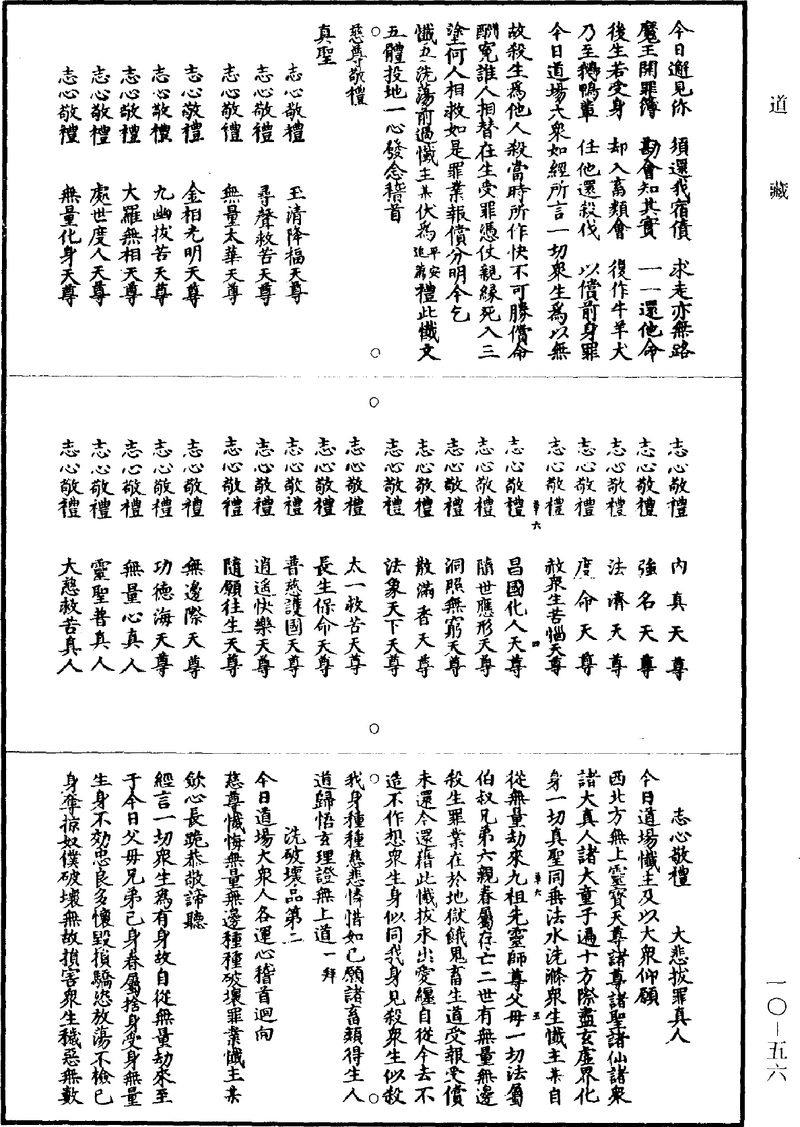 道藏
今日邂見你　須還我宿債　求走亦無路
魔王開罪簿　勘會知其實　一一還他命
後生若受身　却入畜類會　復作牛羊犬
乃至鵝鴨輩　任他還殺伐　以償前身罪
今日道場大衆如經所言一切衆生爲以無
故殺生爲他人殺當時所作快不可勝償命
酬寃誰人相替在生受罪憑仗親緣死入三
塗何人相救如是罪業報償分明今乞
懺主洗蕩前過懺主某伏爲平安追薦禮此懺文
五體投地一心發念稽首
慈尊敬禮
真聖
志心敬禮　玉清降福天尊
志心敬禮　尋聲救苦天尊
志心敬禮　無量太華天尊
志心敬禮　金相光明天尊
志心敬禮　九幽拔苦天尊
志心敬禮　大羅無相天尊
志心敬禮　處世度人天尊
志心敬禮　無量化身天尊
志心敬禮　內真天尊
志心敬禮　強名天尊
志心敬禮　法濟天尊
志心敬禮　度命天尊
志心敬禮　救衆生苦惱天尊
志心敬禮　昌國化人天尊
志心敬禮　隨世應形天尊
志心敬禮　洞照無窮天尊
志心敬禮　散滿香天尊
志心敬禮　法象天下天尊
志心敬禮　太一救苦天尊
志心敬禮　長生保命天尊
志心敬禮　普慈護國天尊
志心敬禮　逍遥快樂天尊
志心敬禮　隨願往生天尊
志心敬禮　無邊際天尊
志心敬禮　功德海天尊
志心敬禮　無量心真人
志心敬禮　靈聖普真人
志心敬禮　大慈救苦真人
志心敬禮　大悲拔罪真人
今日道場懺主及以大衆仰願
西北方無上靈寶天尊諸尊諸聖諸仙諸衆
諸大真人諸大童子遍十方際盡玄虛界化
身一切真聖同垂法水洗滌衆生懺主某自
從無量劫來九祖先靈師尊父母一切法屬
伯叔兄弟六親眷屬存亡二世有無量無邊
殺生罪業在於地獄餓鬼畜生道受報受償
未還今還藉此懺拔永出愛纏自從今去不
造不作想衆生身似同我身見殺衆生似殺
我身種種慈悲憐惜如己願諸畜類得生人
道歸悟玄理證無上道一拜
洗破壞品第二
今日道場大衆人各運心稽首迴向
慈尊懺悔無量無邊種種破壞罪業懺主某
歛心長跪恭敬諦聽
經言一切衆生爲有身故自從無量劫來至
于今日父母兄弟己身眷屬捨身受身無量
生身不効忠良多懷毀損驕恣放蕩不檢己
身奪掠奴僕破壞無故損害衆生穢惡無數
一〇—五六